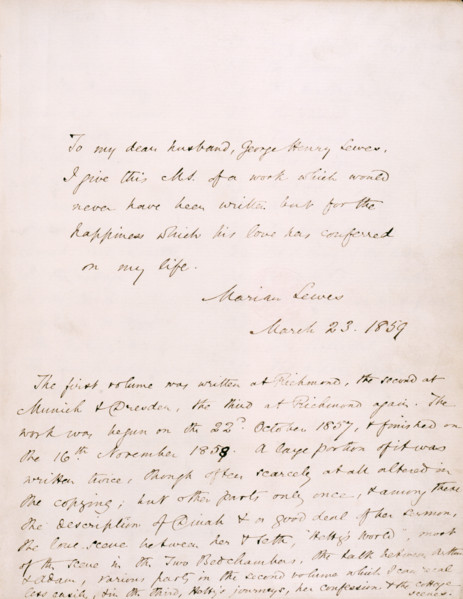 To my dear husband, George Henry Lewes,
I give this M.S. of a work which would
never have been written but for the
happiness which his love has conferred
on my life.
Marian Lewes
March 23. 1859
The first volume was written at Richmond, the second at
Munich & Dresden, the third at Richmond again. The
work was begun on the 22d October 1857, & finished on
the 16th November 1858. A large portion of it was
written twice, though often scarcely at all altered in
the copying; but other parts only once, & among these
the description of Dinah & a good deal of her sermon,
the love scene between her & Seth, "Hetty's World", most
of the scene in the Two Bedchambers, the talk between Arthur
& Adam, various parts in the second volume which I can recal
less easily, & in the third, Hetty's journeys, her confession & the cottage
scenes.